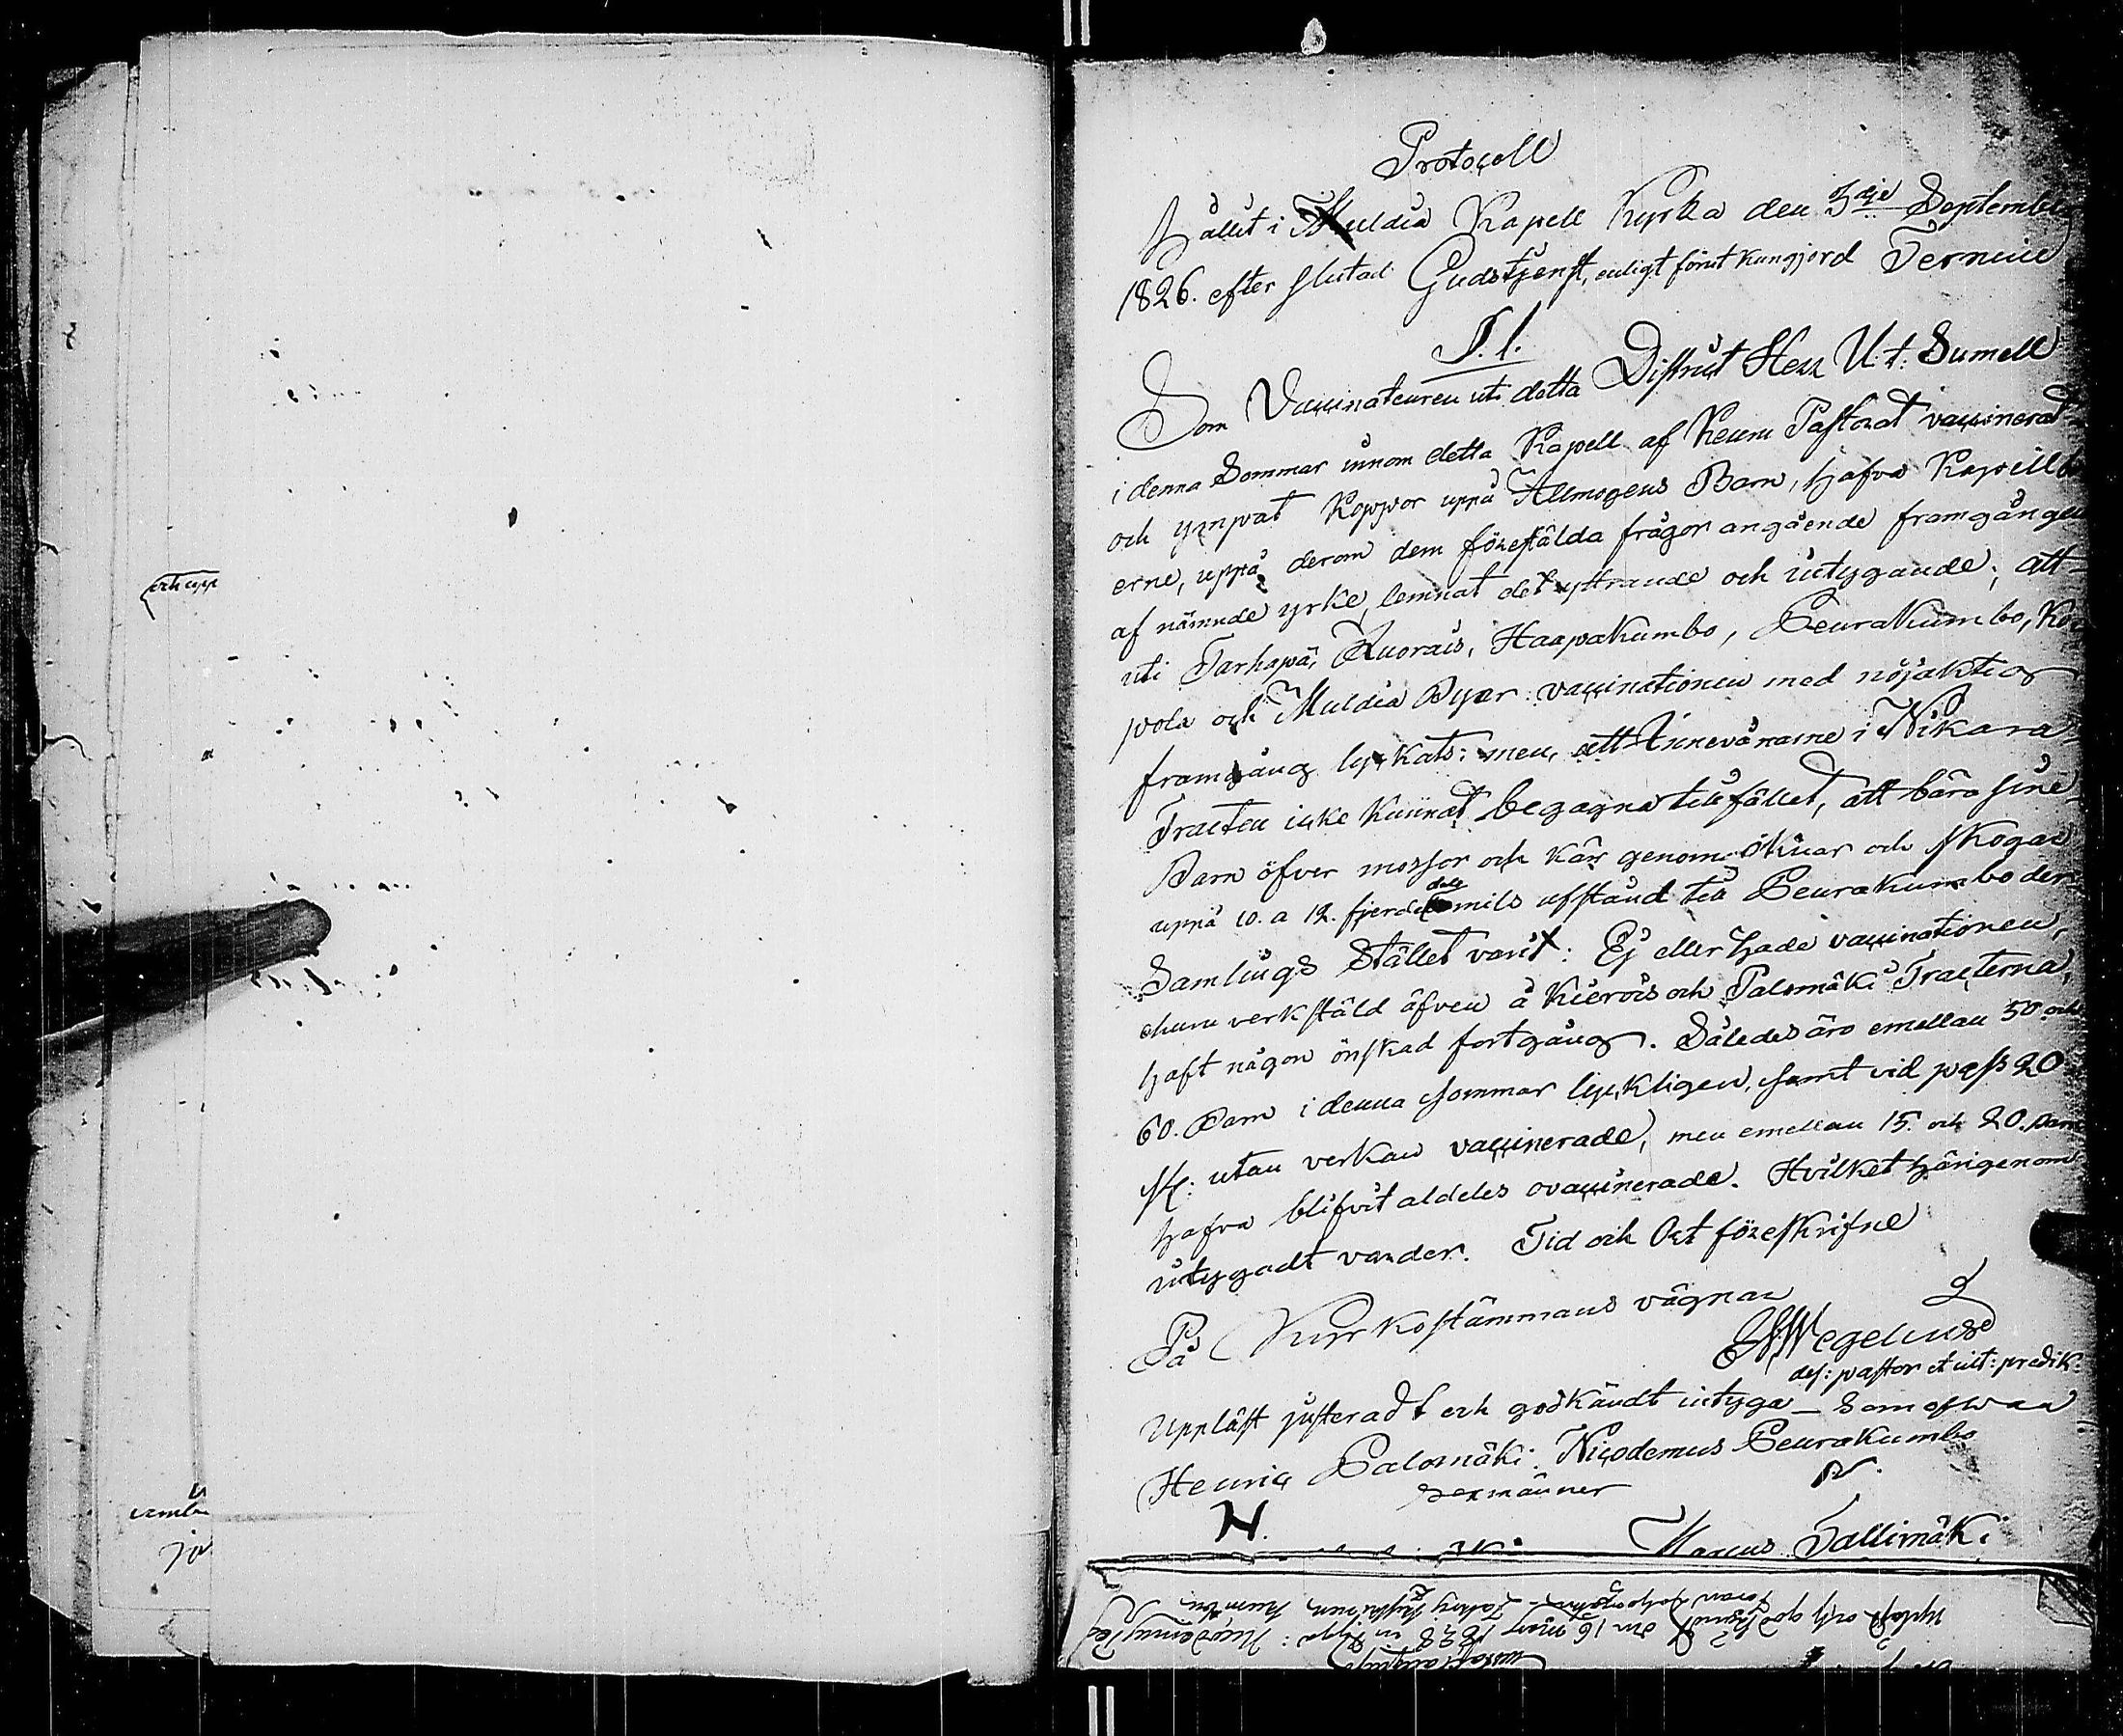 Protocoll
hållit i Muldia Kapell Kyrka den 3dje September
1826. efter slutad Gudstjenst, enligt förut kungjord Termine
§. 1.
Som Vaccinateuren uti detta District Herr U. t. Sumell
i denna Sommar innom detta Kapell af Keuru Pastorat vaccinerat
och ympat Koppor uppå Allmogens Barn, hafva Kapellbo
erne, uppå derom dem förestälda frågor angående framgången
af nämnde yrke, lemnat det yttrande och intygande; att
uti Tarhapä, Kuorais, Haapakumbo, Peurakumbo, Ko
pola och Muldia Byar vaccinationen med nöjaktig
framgång lyckats: men, att Innevånarne i Nikara
Tracten icke kunnat begagna tillfället, att bära sine
Barn öfver mossor och kärr genom öknar och skogar
uppå 10. a 12. fjerde dels mils afstånd till Peurakumbo der
Samlings Stället varit: Ej eller hade vaccinationen,
ehuru verkstäld äfven å Kierois och Palomäki Tracterna,
haft någon önskad fortgång. Således äro emellan 50 och
60. Barn i denna sommar lyckligen, samt vid pass 20
st: utan verkan vaccinerade, men emellan 15. och 20. Barn
hafva blifvit aldeles ovaccinerade. Hvilket härigenom
intygadt varder. Tid och Ort föreskrifne
På Kyrkostämmans vägnar
Wegelius
def: pastor et ult: predik:
Uppläst justeradt och godkändt intyga
Henric Palomäki Nicodemus Peurakumbo
Sexmänner
N.
Marcus Tallimäki
och upp